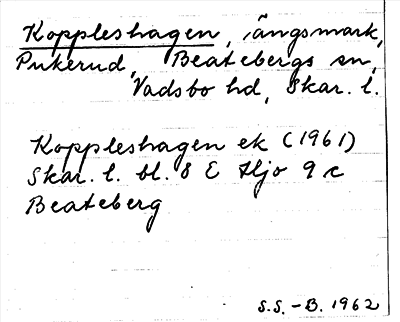 Koppleshagen, ängsmark,
Pukerud, Beatebergs sn,
Vadsbo hd, Skar. l.
Koppleshagen ek (1961)
Skar. l. bl. 8 E Hjo 9 c
Beateberg
S.S. - B. 1962